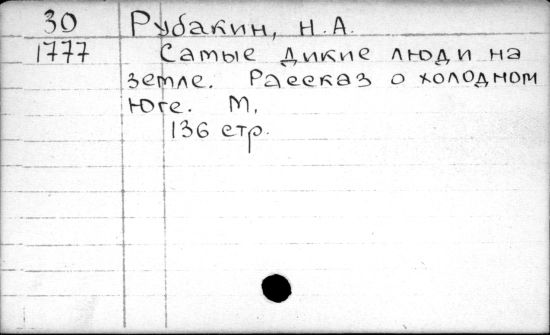 30 Рубакин, Н.А.
1777 Самые дикие люди на
земле. Рассказ о холодном
Юге. М,
136 стр.